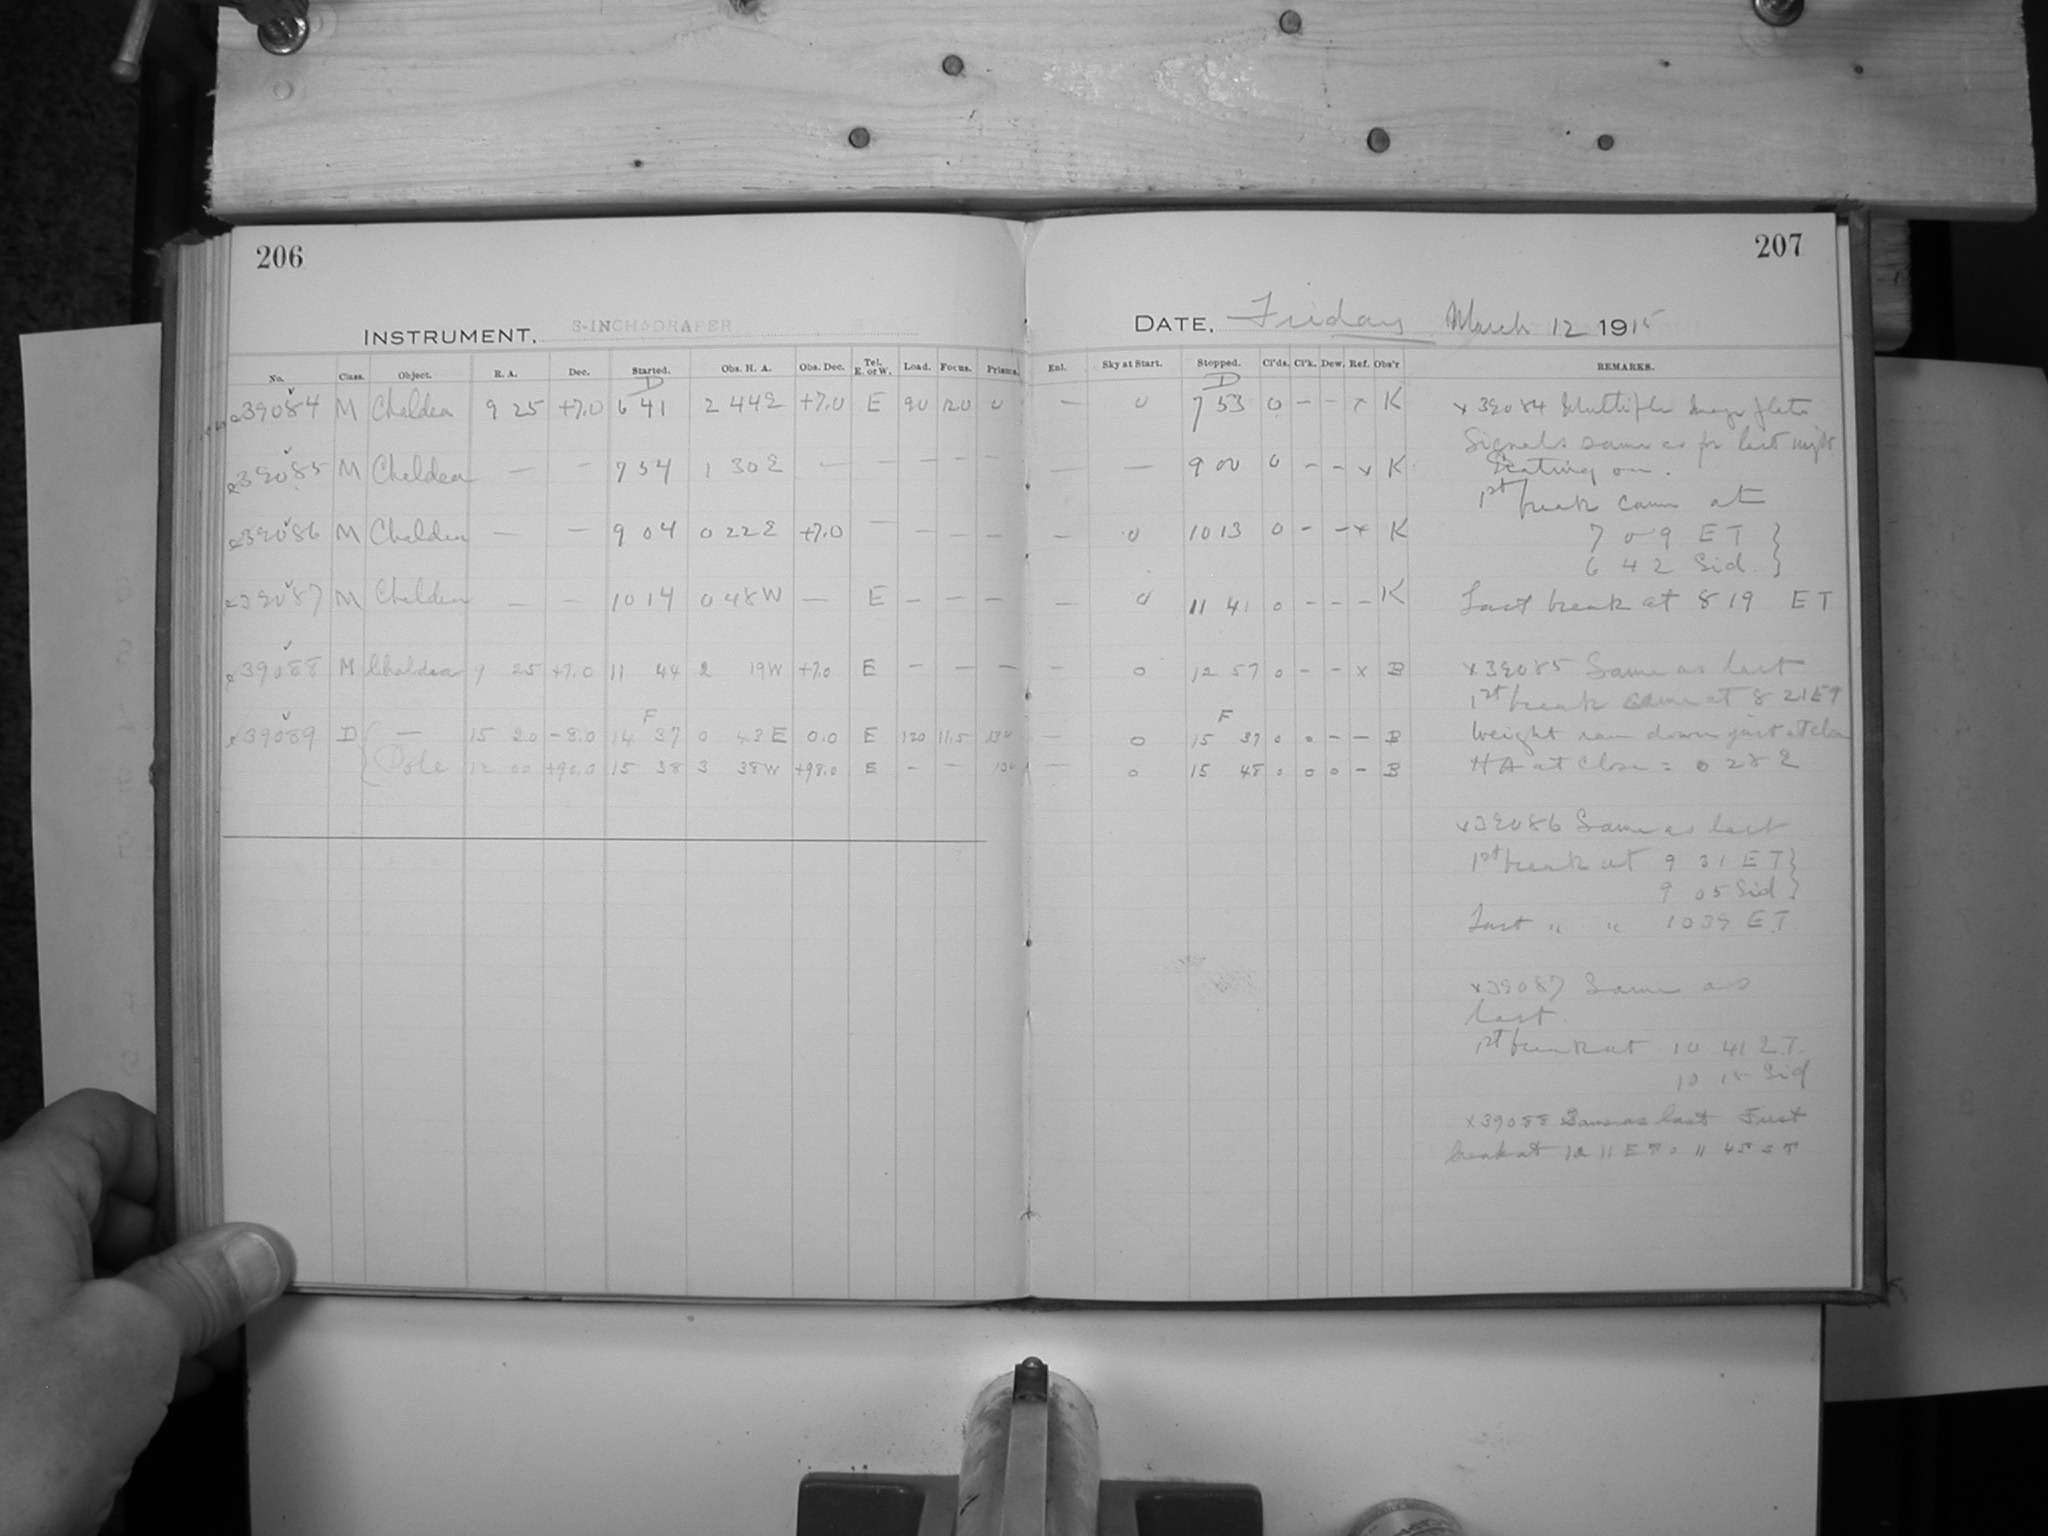 206
207
INSTRUMENT. 8-INCH DRAPER
DATE, Friday March 12 1915
No. Class. Object. R. A. Dec. Started. Obs. H. A. Obs. Dec. Tel. E. or W. Load. Focus. Prisms. Enl. Sky at Start. Stopped. Cl'ds. Cl'k. Dew. Ref. Obs'r REMARKS.
D D
39084 M Chaldea 9 25 +7.0 6 41 2 44 E +7.0 E 90 12.0 0 — 0 7 53 0 - - x K
39085 M Chaldea — - 7 54 1 30 E — - - - - — — 9 00 0 - - x K
39086 M Chaldea — - 9 04 0 22 E +7.0 — - - - — 0 10 13 0 - - x K
39087 M Chaldea — - 10 14 0 48 W — E - - - — 0 11 41 0 - - - K
39088 M Chaldea 9 25 +7.0 11 44 2 19 W +7.0 E - - - — 0 12 57 0 - - x B
F F
39089 D { — 15 20 -8.0 14 37 0 43 E 0.0 E 120 11.5 130 — 0 15 37 0 0 - - B
Pole 12 00 +90.0 15 38 3 38 W +98.0 E - - 130 — 0 15 48 0 0 0 - B
x39084 Multiple Image plate
Signals same as for last night
on.
1st break came at
7 0 9 E T }
6 42 Sid. }
Last break at 8 19 E T
x39085 Same as last
1st break came at 8 21 E T
Weight ran down just at close
H A at close = 0 28 E
x39086 Same as last
1st break at 9 31 E T }
9 05 Sid }
Last " " 10 39 E T
x39087 Same as
last
1st break at 10 41 E T.
10 15 Sid
x39088 Same as last First
break at 12 11 E T = 11 45 S T